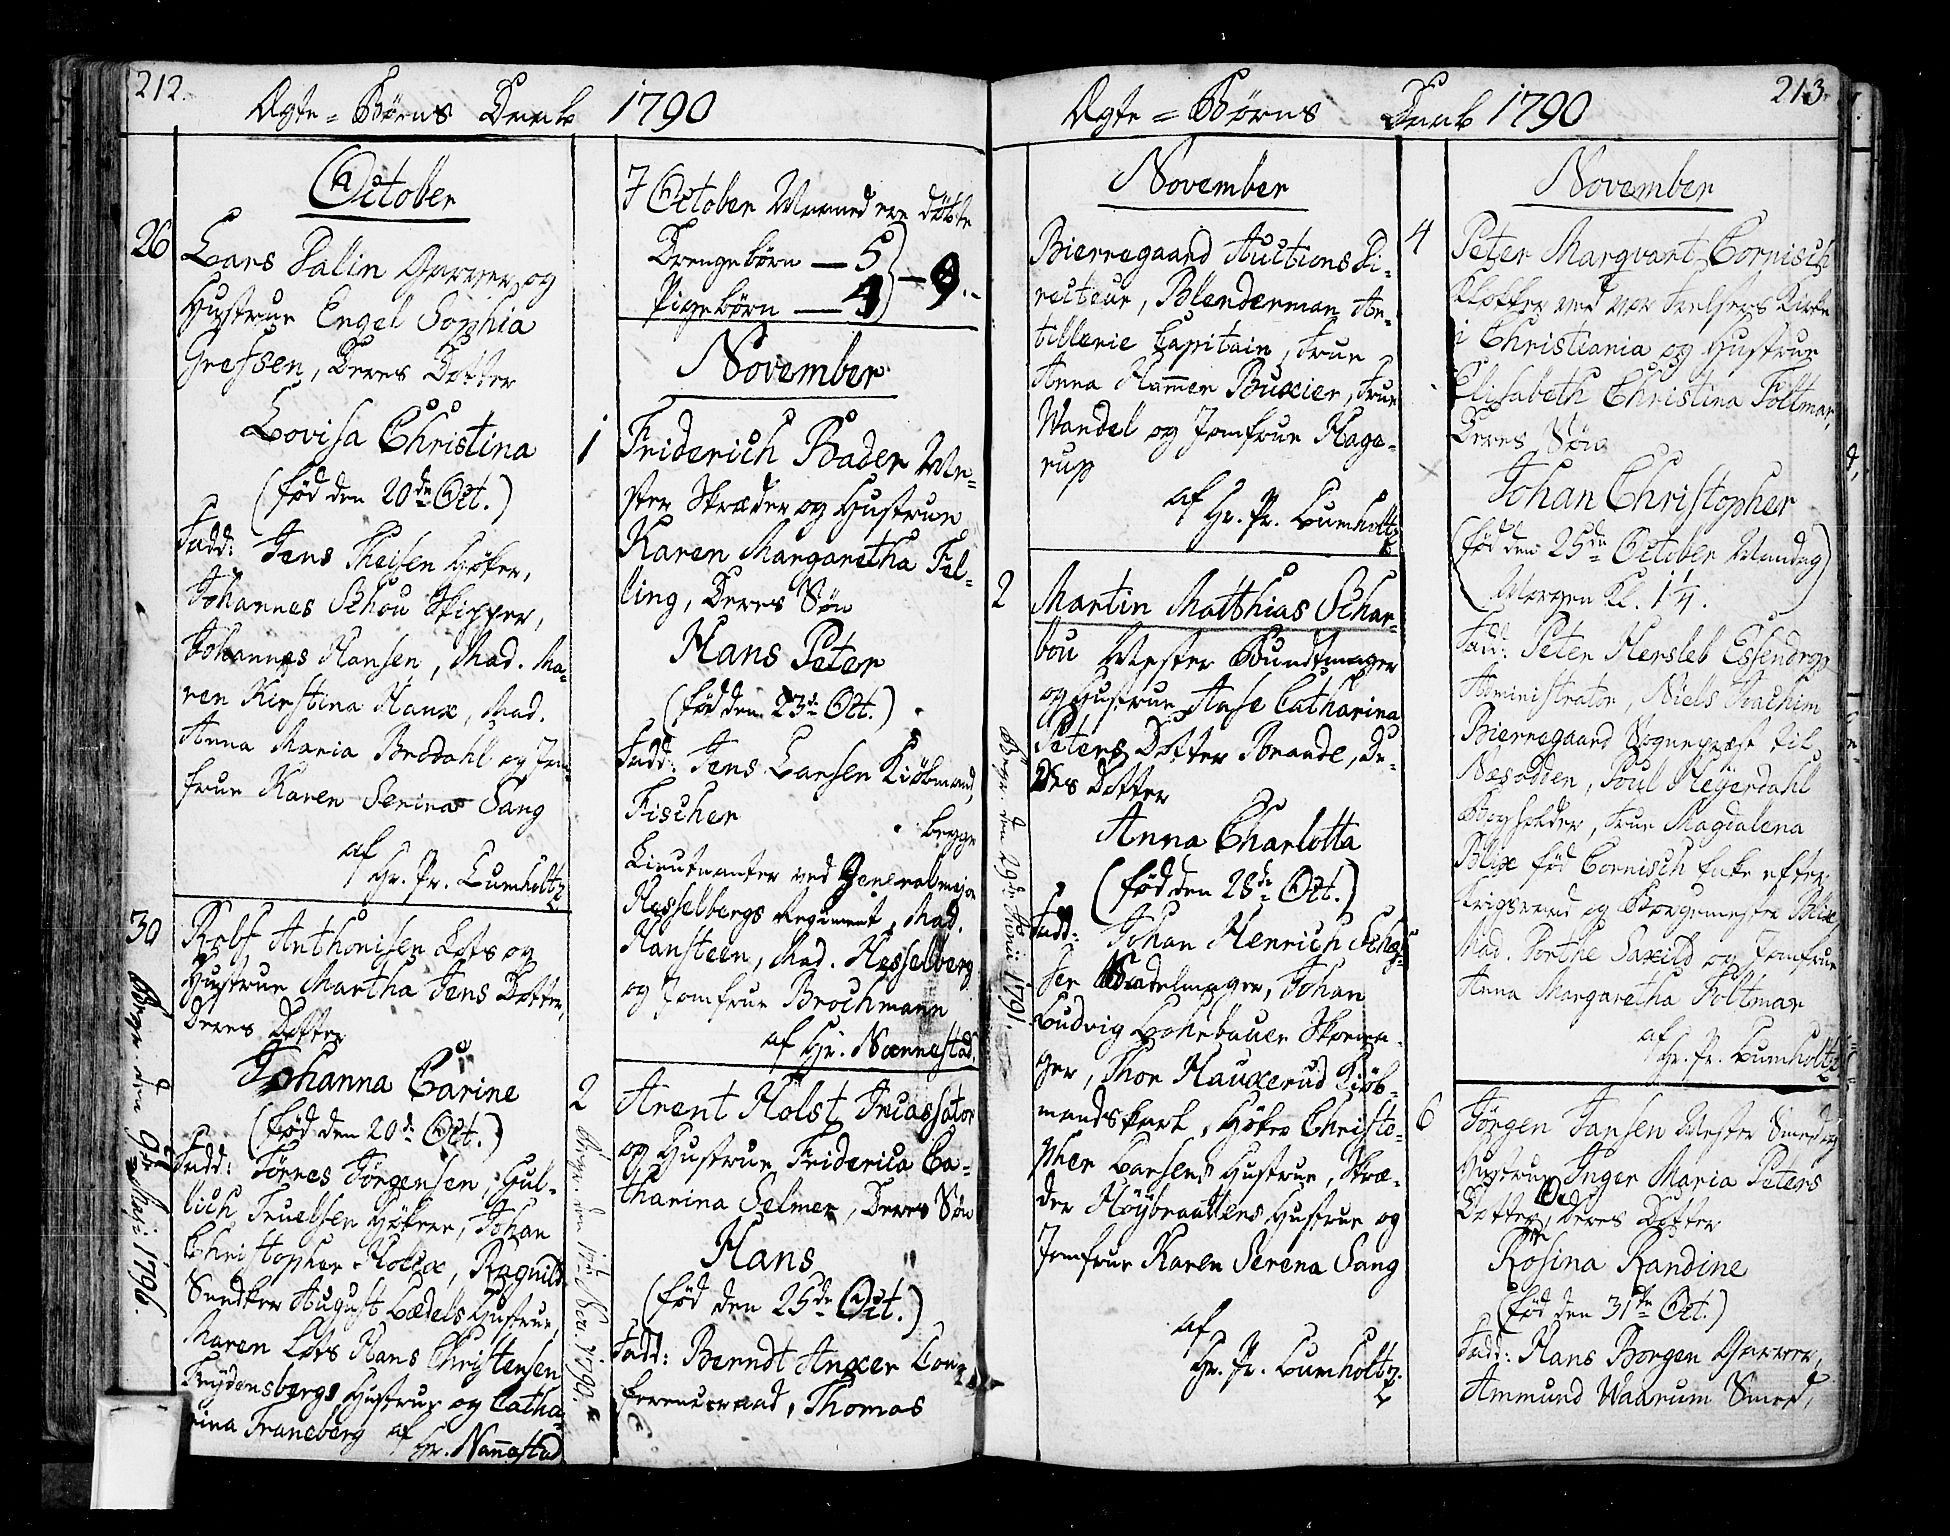 212.
Ægte = Børns Daab 1790
October
26
Lars Palin Garver og
Hustrue Engel Sophia
Grefsen, Deres Dotter
Lovisa Christina
(født den 20de Oct.)
Fadd: Jens Theisen Høker,
Johannes Schou Skipper,
Johannes Hansen, Mad. Ma-
ren Kirstina Haux, Mad.
Anna Maria Brodahl og Jom-
frue Karen Serina Sang
af
Hr. Pr. Lumholtz
30
Rolf Anthonisen Lots og
Hustrue Martha Jens Dotter,
Deres Dotter
Johanna Carine
(fød den 20de Oct.)
Fadd: Tørres Jørgensen, Gul-
lich Truelsen Høkere, Johan
Christopher Holta, Ragnild
August Lædels Hustrue,
Maren Lots Hans Christensen
Frydensbergs Hustrue og Catha-
rina Traneberg af
Hr. Nannestad
1796.
I October Maaned ere døbte
Drengebørn — 5
Pigebørn — 4
— 9.
November
1
Friderich Bader Me-
ster Skræder og Hustrue
Karen Margaretha Fel-
ling, Deres Søn
Hans Peter
(fød den 23de Oct.)
Fadd: Jens Larsen Kiøbmand,
Fischer
begge
Lieutnanter ved Generalmajor
Hesselbergs Regiment, Mad.
Hansteen, Mad. Hesselberg
og Jomfrue Brochmann
af Hr. Nannestad
2
Arent Holst Incassator
og Hustrue Friderica Ca-
tharina Selmer, Deres Søn
Hans
(fød den 25de Oct.)
Fadd: Berndt Anker Con-
ferenceraad, Thomas
1790.
213.
Ægte = Børns Daab 1790
November
Bierregaard Auctions Di-
recteur, Blenderman Ar-
tillerie Capitain, Frue
Anna Hammer Buxier, Frue
Wandel og Jomfrue Hage-
rup
af
Hr. Pr. Lumholtz
2
Martin Matthias Schar-
bou Mester Bundtmager
og Hustrue Aase Catharina
Peters Dotter Brande, De-
res Dotter
Anna Charlotta
(fød den 28de Oct.)
Fadd: Johan Henrich
Sadelmager, Johan
Ludvig Hohebauer Skoma-
ger, Thor Hauxerud Kiøb-
mandskarl, Høker Christo-
pher Larsens Hustrue, Skræ-
der Höÿbraattens Hustrue og
Jomfrue Karen Serena Sang
af
Hr. Pr. Lumholtz.
1791.
November
4
Peter Marqvart Cornisch
Klokker ved vor Frelsers Kirke
i Christiania og Hustrue
Elisabeth Christina Foltmar,
Deres Søn
Johan Christopher
(fød den 25de October Mandag
Morgen Kl.
Fadd: Peter Hersleb Essendrop
Administrator, Niels Joachim
Bierregaard Sognepræst til
Næsodden, Poul Heÿerdahl
Bogholder, Frue Magdalena
Blix fød Cornisch Enke efter
Krigsraad og Borgemester Blix,
Mad. Dorthe Saxild og Jomfrue
Anna Margaretha Foltmar
af
Hr. Pr. Lumholtz
6
Jörgen Jansen Mester Smed og
Hustrue Inger Maria Peters
Dotter, Deres Dotter
Rosina Randine
(fød den 31te Oct.)
Fadd: Hans Borgen Garver,
Ammund Waarum Smed,